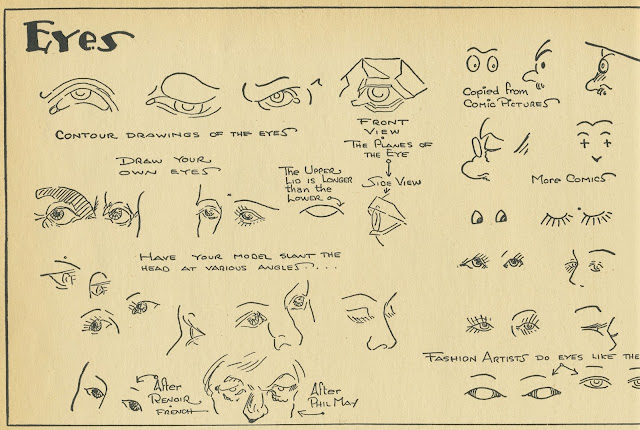 Eyes
CONTOUR DRAWINGS OF THE EYES
FRONT
VIEW
THE PLANES OF
THE EYE
SIDE VIEW
DRAW YOUR
OWN EYES
The UPPER
LID IS LONGER
than the
LOWER
HAVE YOUR MODEL SLANT THE
HEAD AT VARIOUS ANGLES....
After
RENOIR
FRENCH
After
PHIL MAY
Copied from
COMIC PICTURES
MORE COMICS
FASHION ARTISTS DO EYES LIKE THE